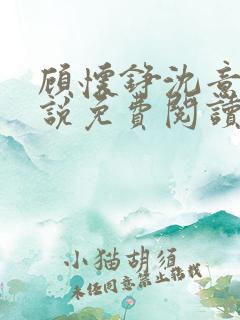 顾懷錚沈意
說免費閱讀
小猫胡須
未经同意禁止转载